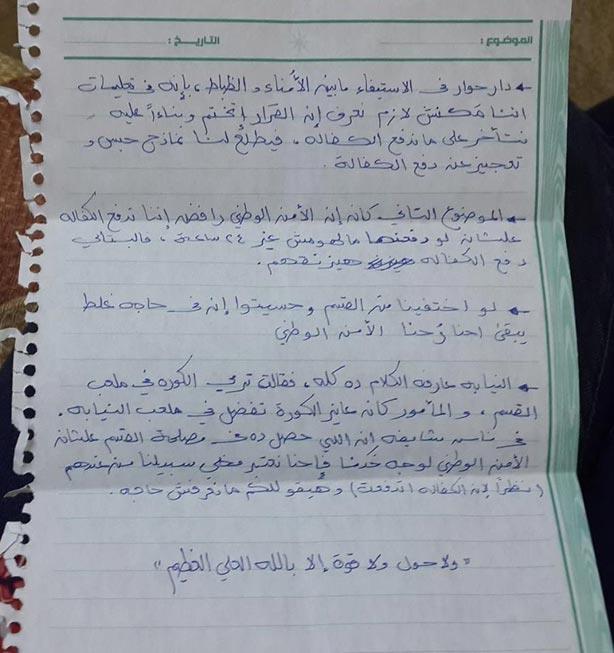 الموضوع : التاريخ :
← دار حوار فى الاستيفاء ما بين الأمناء و الظباط ، بإنه فى تعليمات
اننا مكنش لازم نعرف إن القرار إتختم وبناءاً عليه
نتأخر على ما ندفع الكفاله ، فيطلع لنا نماذج حبس و
تعجيز عن دفع الكفالة .
← الموضوع التاني كان إن الأمن الوطني رافض إننا ندفع الكفاله
علشان لو دفعنها مالهومش غير ٢٤ ساعة ، فالبتالي
دفع الكفاله هيزنقهم .
← لو اختفينا من القسم وحسيتوا إن فى حاجه غلط
يبقى احنا رُحنا الأمن الوطني
← النيابه عارفه الكلام ده كله ، فقالت ترمي الكوره في ملعب
القسم ، و المأمور كان عايز الكورة تفضل في ملعب النيابه .
فى ناس شايفه ان اللي حصل ده فى مصلحة القسم علشان
الأمن الوطني لو جه خدنا فإحنا نعتبر مخلي سبيلنا من عندهم
(نظراً لإن الكفاله اتدفعت) و هيقولكم مانعرفش حاجه .
" ولا حول ولا قوة إلا بالله العلي العظيم "